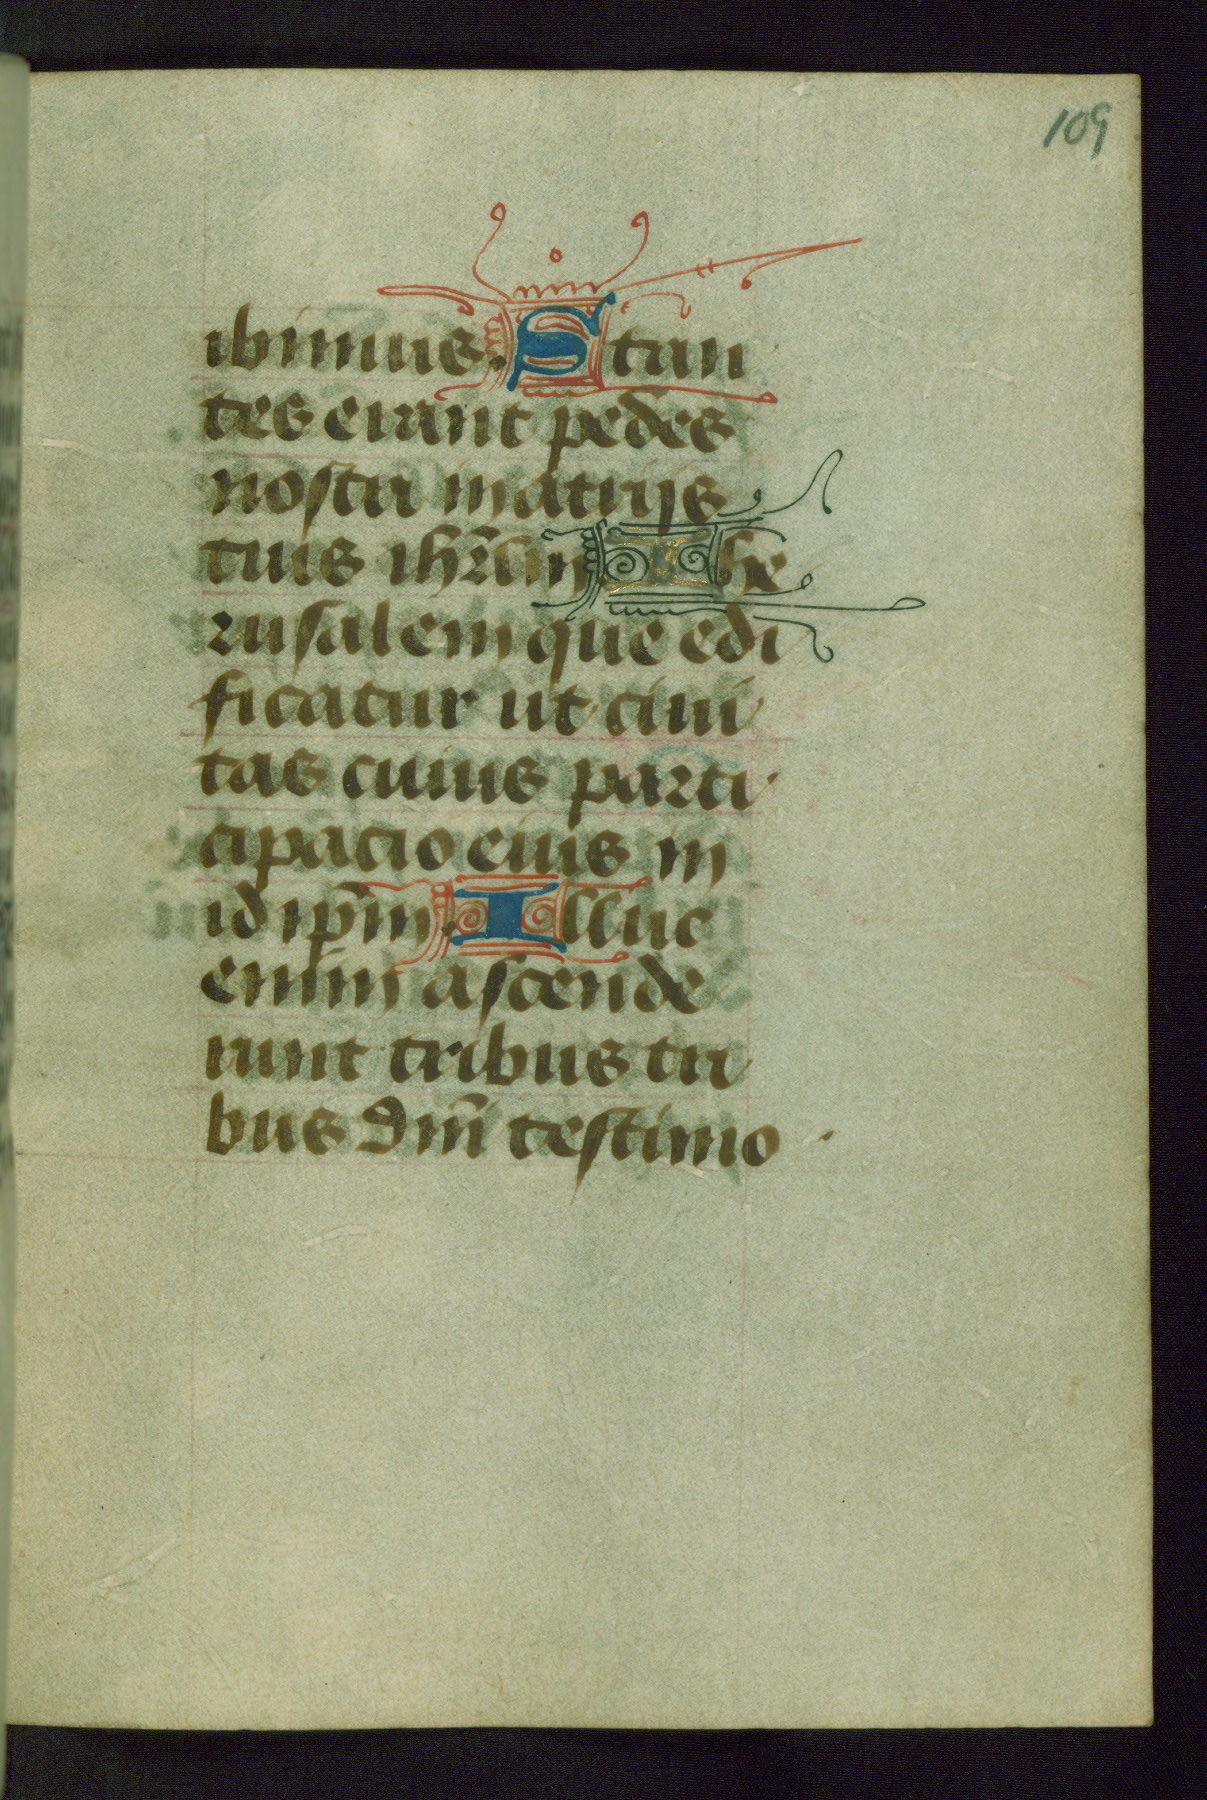 109
ibimus. Stan
tes erant pedes
nostri in atrijs
tuis ihrl̄m Ihe
rusalem que edi
ficatur ut ciui
tas cuius parti
cipacio eius in
id ip̄m. Illuc
enim ascende
runt tribus tri
bus dn̄i testimo